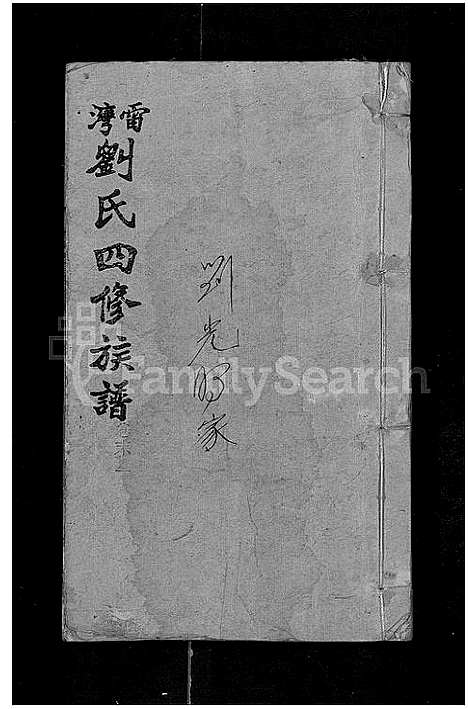 雷灣
劉氏四修族譜
劉光明家
FamilySearch